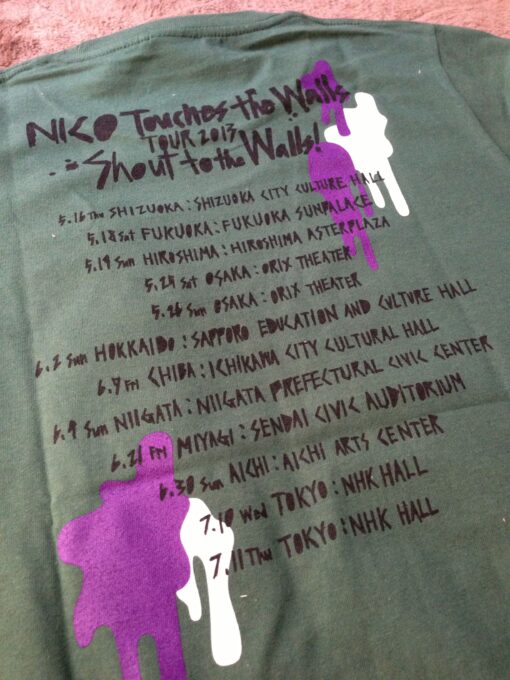 NICO Touches the Walls
TOUR 2013
Shout to the Walls!
5.16 Thu SHIZUOKA : SHIZUOKA CITY CULTURE HALL
5.18 Sat FUKUOKA : FUKUOKA SUNPALACE
5.19 Sun HIROSHIMA : HIROSHIMA ASTERPLAZA
5.25 Sat OSAKA : ORIX THEATER
5.26 Sun OSAKA : ORIX THEATER
6.2 Sun HOKKAIDO : SAPPORO EDUCATION AND CULTURE HALL
6.7 Fri CHIBA : ICHIKAWA CITY CULTURAL HALL
6.9 Sun NIIGATA : NIIGATA PREFECTURAL CIVIC CENTER
6.21 Fri MIYAGI : SENDAI CIVIC AUDITORIUM
6.30 Sun AICHI : AICHI ARTS CENTER
7.10 Wed TOKYO : NHK HALL
7.11 Thu TOKYO : NHK HALL